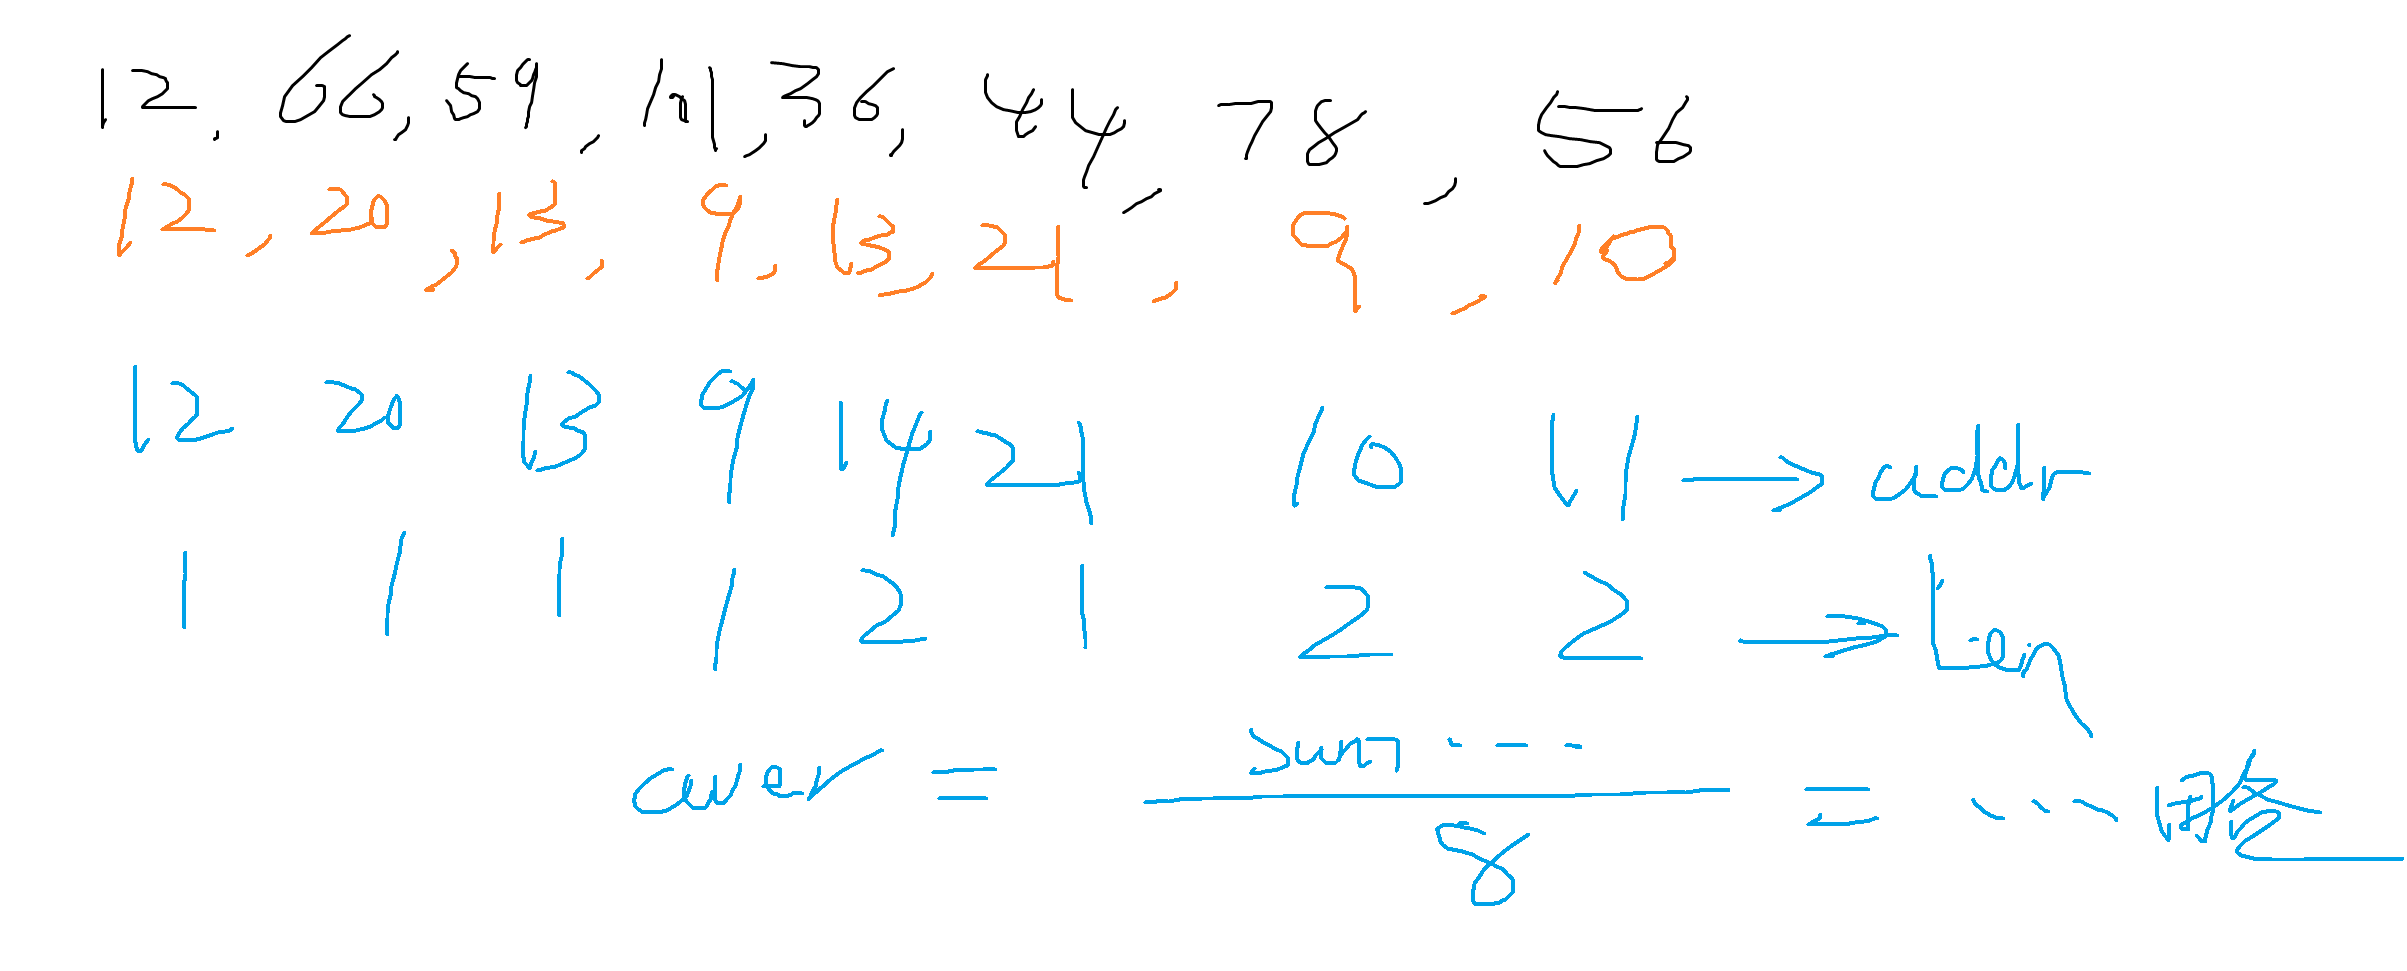 12, 66, 59, 101, 36, 44, 78, 56
12, 20, 13, 9, 13, 21, 9, 10
12 20 13 9 14 21 10 11 → addr
1 1 1 1 2 1 2 2 → Len
aver = sum ··· / 8 = ··· 略